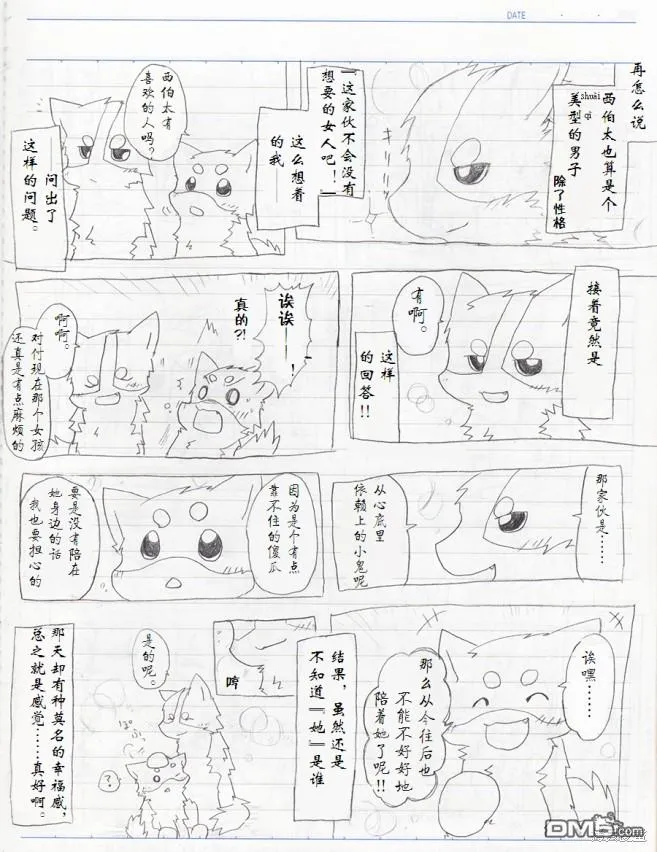 DATE
再怎么说
西伯太也算是个
shuài qì
美型的男子
除了性格
キリッ
「这家伙不会没有
想要的女人吧！」
这么想着
的我
西伯太有
喜欢的人吗？
问出了
这样的问题。
接着竟然是
有啊。
这样
的回答!!
诶诶——！
真的?!
啊啊。
对付现在那个女孩
还真是有点麻烦的
那家伙是……
从心底里
依赖上的小鬼呢
因为是个有点
靠不住的傻瓜
要是没有陪在
她身边的话
我也要担心的
诶嘿……
那么从今往后也
不能不好好地
陪着她了呢!!
结果，虽然还是
不知道『她』是谁
哼
是的呢。
？
那天却有种莫名的幸福感，
总之就是感觉……真好啊。